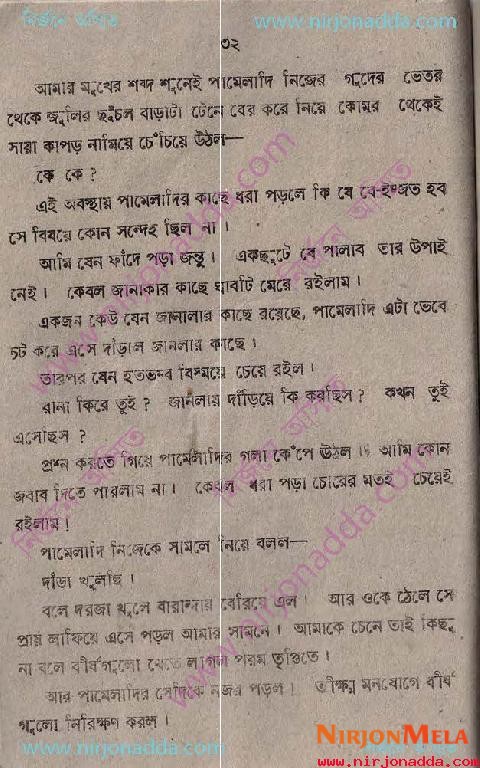 নির্জনে অস্মিতে www.nirjonadda.com
৩২
আমার মুখের শব্দ শুনেই পামেলাদি নিজের গুদের ভেতর
থেকে জুলির ছুঁচল বাড়াটা টেনে বের করে নিয়ে কোমর থেকেই
সায়া কাপড় নামিয়ে চেঁচিয়ে উঠল—
কে কে ?
এই অবস্থায় পামেলাদির কাছে ধরা পড়লে কি যে বে-ইজ্জত হব
সে বিষয়ে কোন সন্দেহ ছিল না ।
আমি যেন ফাঁদে পড়া জন্তু । একছুটে যে পালাব তার উপাই
নেই । কেবল জানাকার কাছে ঘাবটি মেরে রইলাম ।
একজন কেউ যেন জানালার কাছে রয়েছে, পামেলাদি এটা ভেবে
চট করে এসে দাঁড়াল জানলার কাছে ।
তারপর যেন হতভম্ব বিস্ময়ে চেয়ে রইল ।
রানা কিরে তুই ? জানলায় দাঁড়িয়ে কি করছিস ? কখন তুই
এসেছিস ?
প্রশ্ন করতে গিয়ে পামেলাদির গলা কেঁপে উঠল । আমি কোন
জবাব দিতে পারলাম না । কেবল ধরা পড়া চোরের মতই চেয়েই
রইলাম ।
পামেলাদি নিজেকে সামলে নিয়ে বলল—
দাঁড়া খুলছি ।
বলে দরজা খুলে বারান্দায় বেরিয়ে এল । আর ওকে ঠেলে সে
প্রায় লাফিয়ে এসে পড়ল আমার সামনে । আমাকে চেনে তাই কিছু
না বলে বীর্যগুলো খেতে লাগল পরম তৃপ্তিতে ।
আর পামেলাদির সেদিকে নজর পড়ল । তীক্ষ্ণ মনযোগে বীর্য
গুলো নিরিক্ষণ করল ।
NIRJONMELA
www.nirjonadda.com
www.nirjonadda.com